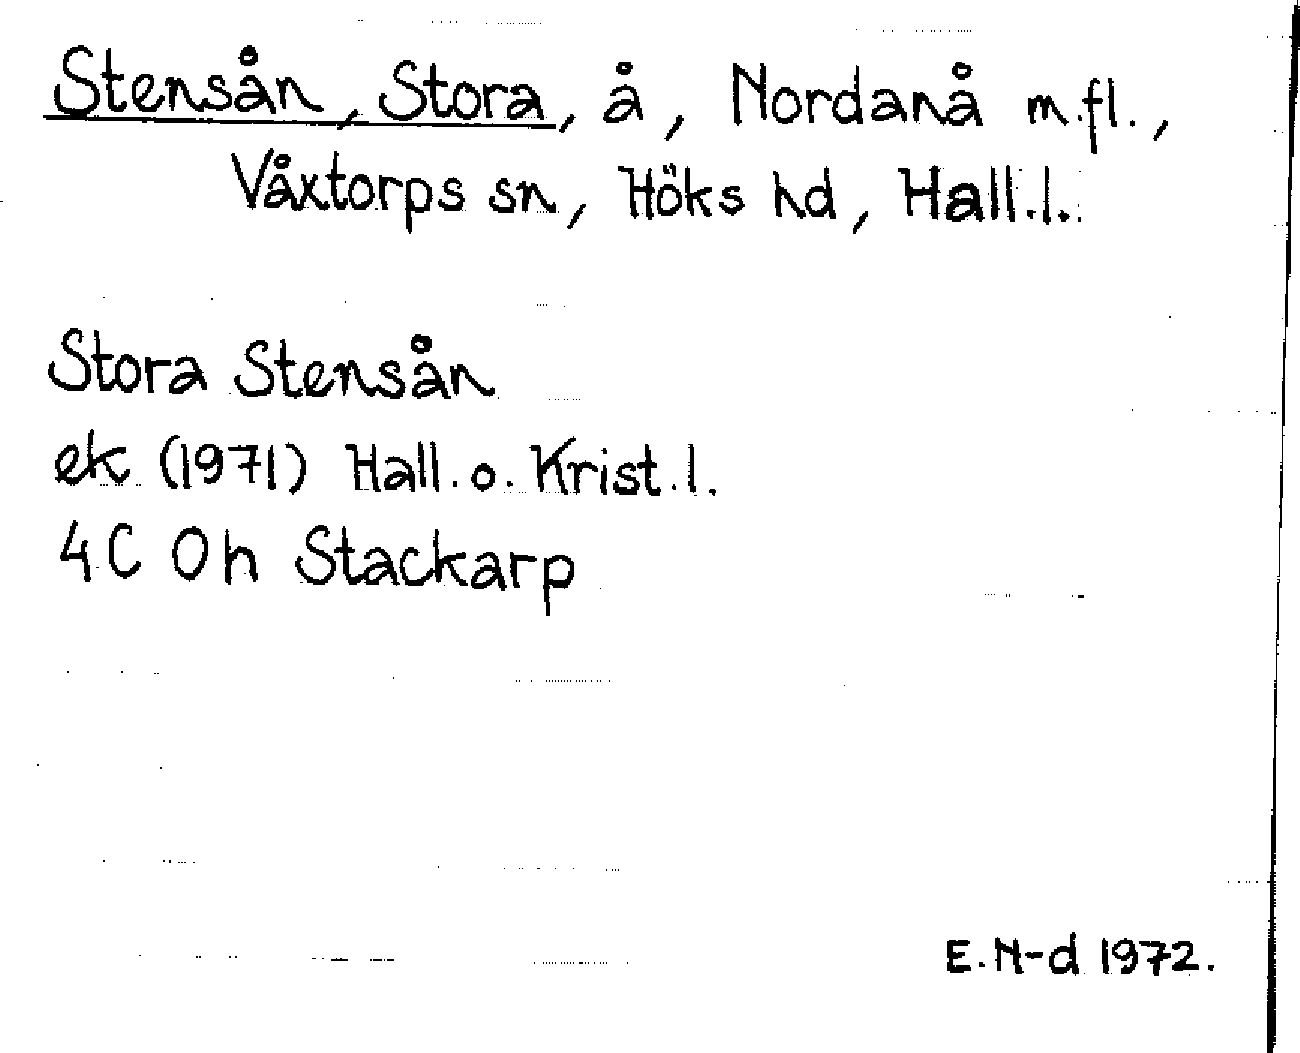 Stensån, Stora, å, Nordanå m.fl.,
Våxtorps sn, Höks hd, Hall.l.
Stora Stensån
ek (1971) Hall. o. Krist.l.
4C 0h Stackarp
E.N-d 1972.